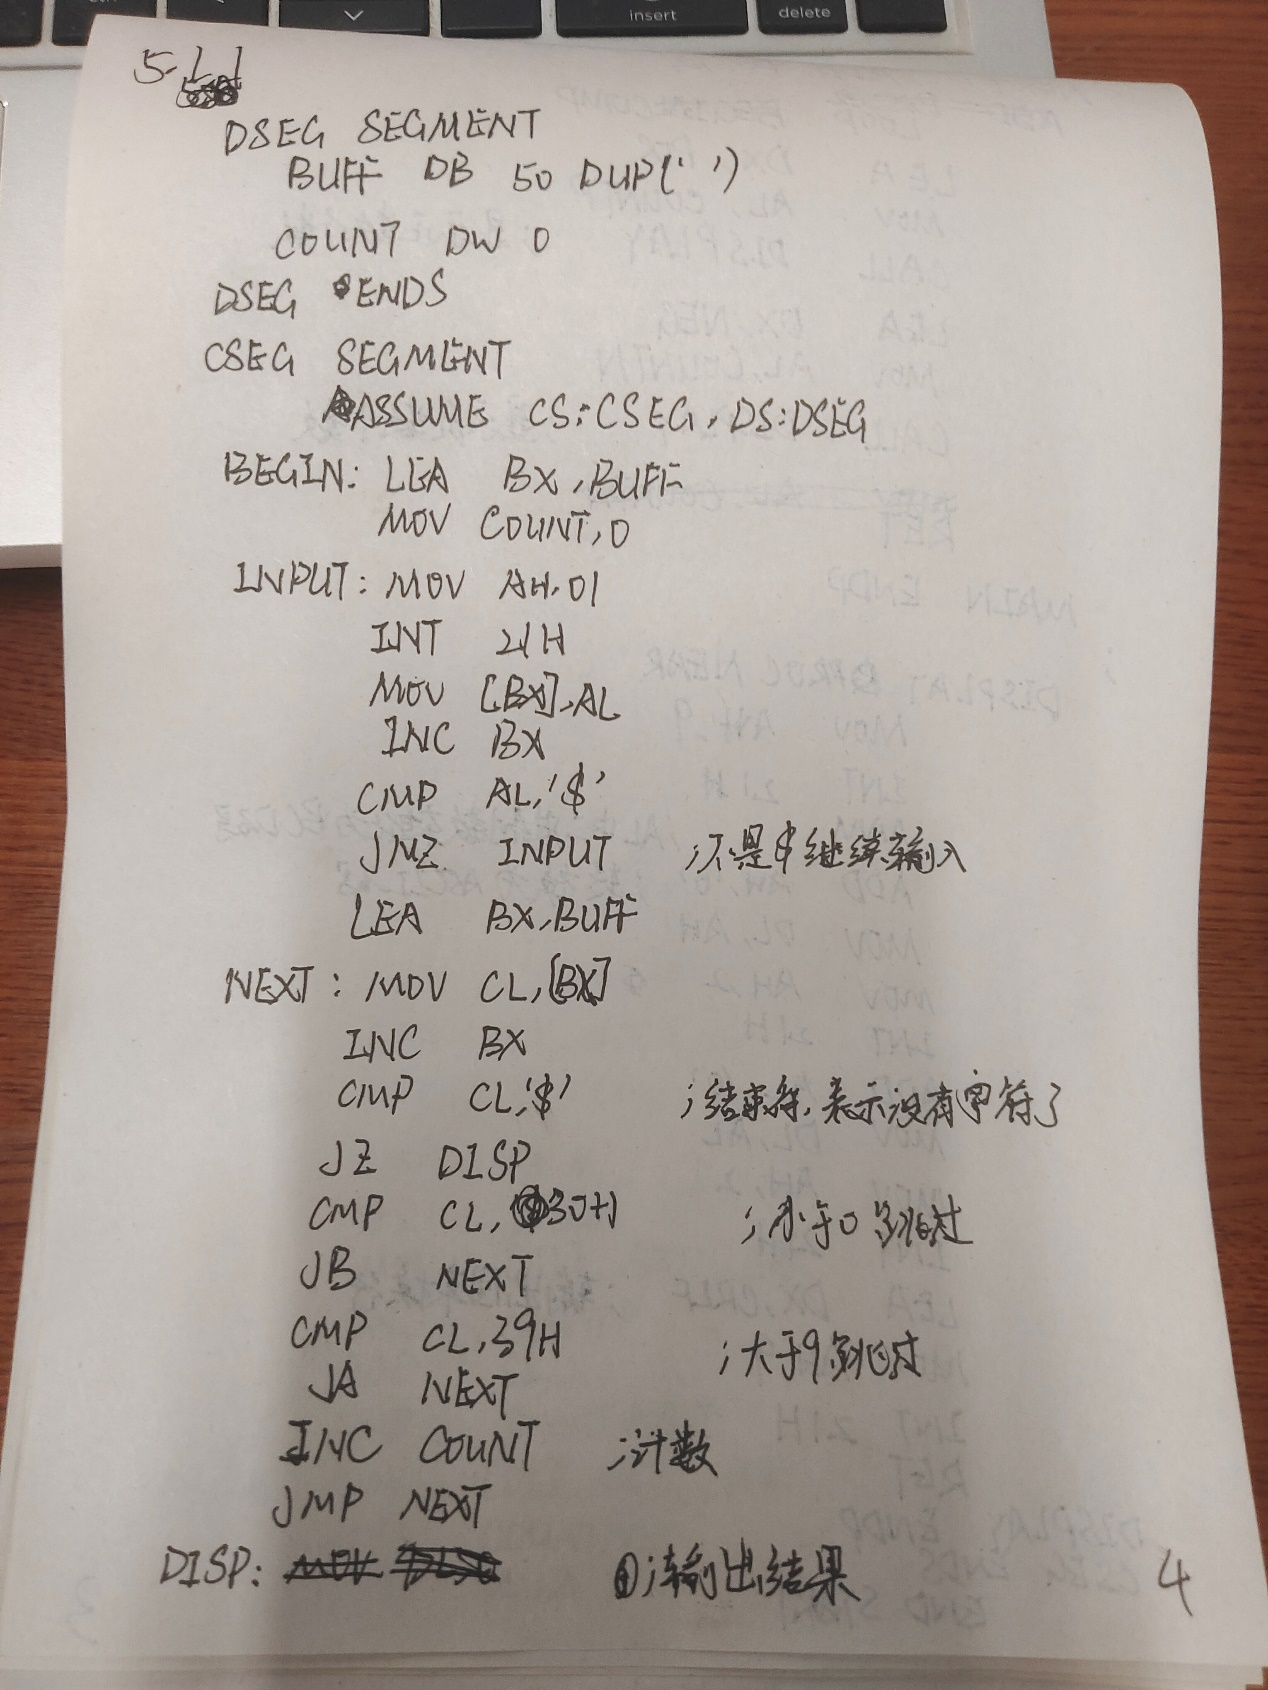 insert
delete
5-11
DSEG SEGMENT
BUFF DB 50 DUP(' ')
COUNT DW 0
DSEG ENDS
CSEG SEGMENT
ASSUME CS:CSEG, DS:DSEG
BEGIN: LEA BX, BUFF
MOV COUNT, 0
INPUT: MOV AH, 01
INT 21H
MOV [BX], AL
INC BX
CMP AL, '$'
JNZ INPUT ;不是$继续输入
LEA BX, BUFF
NEXT: MOV CL, [BX]
INC BX
CMP CL, '$' ;结束符,表示没有字符了
JZ DISP
CMP CL, 30H ;小于0跳过
JB NEXT
CMP CL, 39H ;大于9跳过
JA NEXT
INC COUNT ;计数
JMP NEXT
DISP: ①;输出结果
4